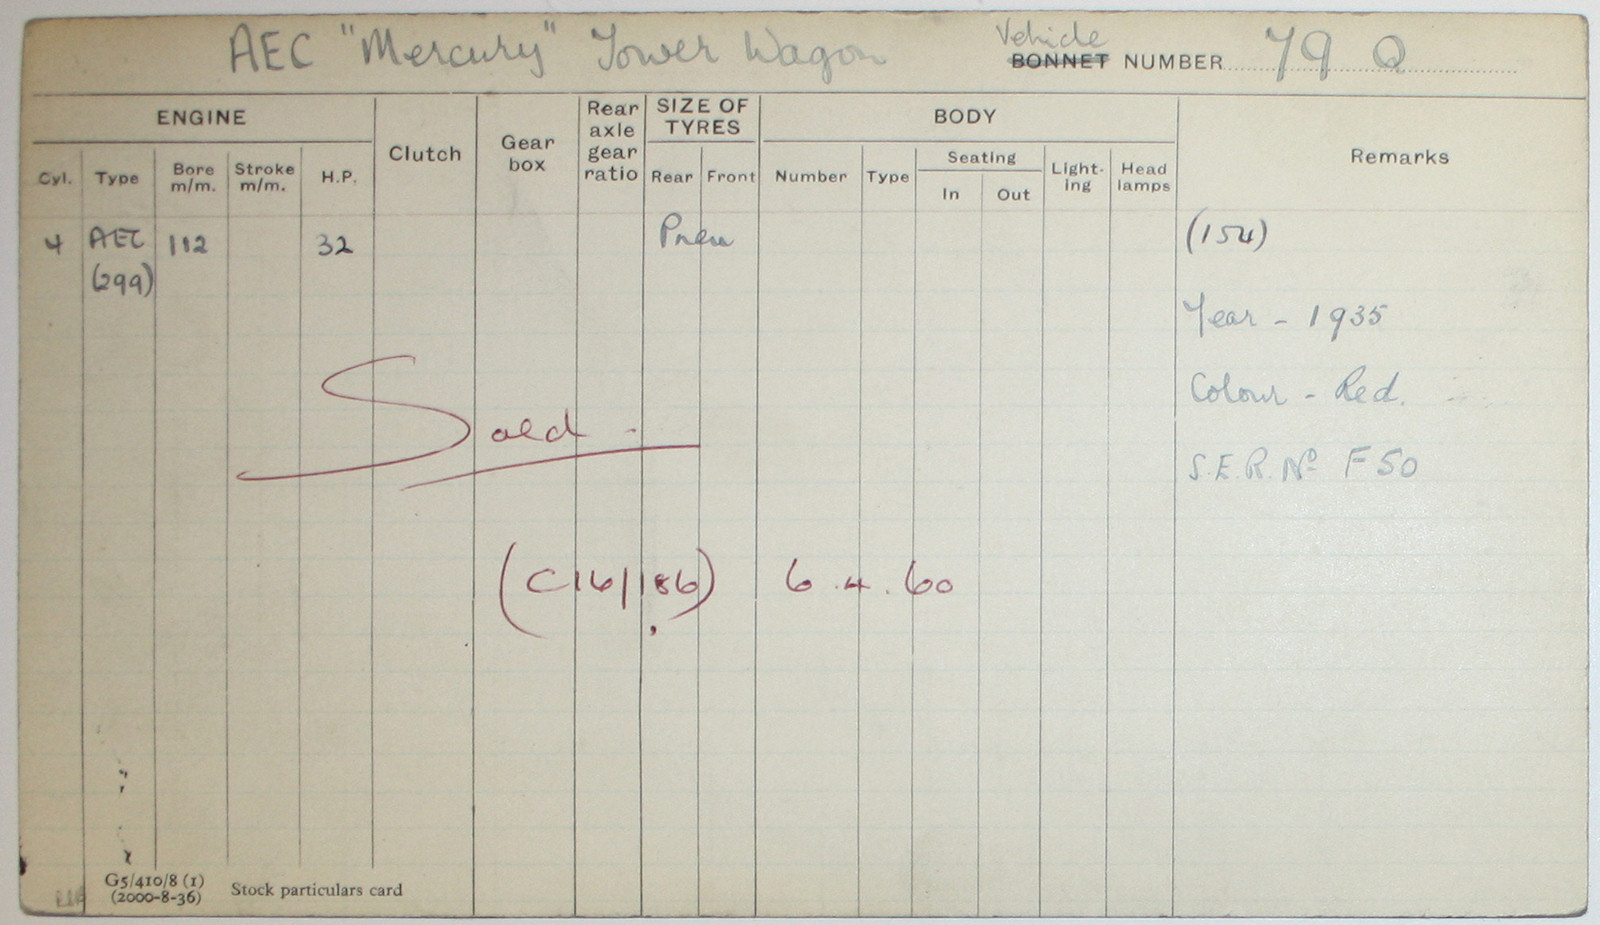 AEC "Mercury" Tower Wagon
Vehicle
BONNET NUMBER 79 Q
ENGINE
Clutch
Gear box
Rear axle gear ratio
SIZE OF TYRES
BODY
Remarks
Cyl.
Type
Bore m/m.
Stroke m/m.
H.P.
Rear
Front
Number
Type
Seating
In
Out
Light-ing
Head lamps
4
AEC
112
32
Pneu
(154)
(299)
Year - 1935
Colour - Red.
S.E.R. No F50
Sold -
(C16/186) 6.4.60
G5/410/8 (1)
(2000-8-36)
Stock particulars card